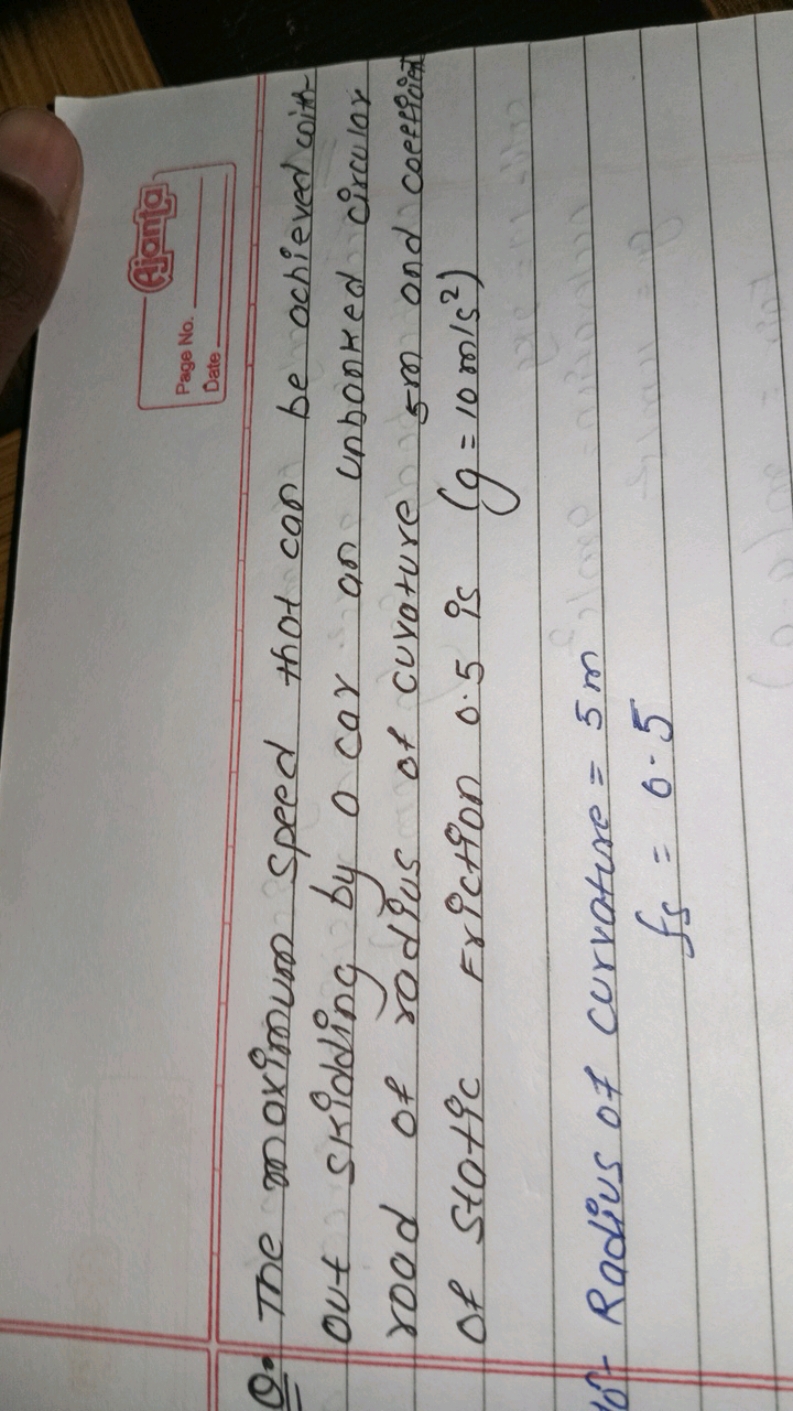 Ajanta
Page No.
Date
Q. The maximum speed that can be achieved with-
out skidding by a car on unbanked circular
road of radius of curvature 5m and coefficient
of static Friction 0.5 is (g = 10 m/s²)
Radius of curvature = 5 m
fs = 0.5